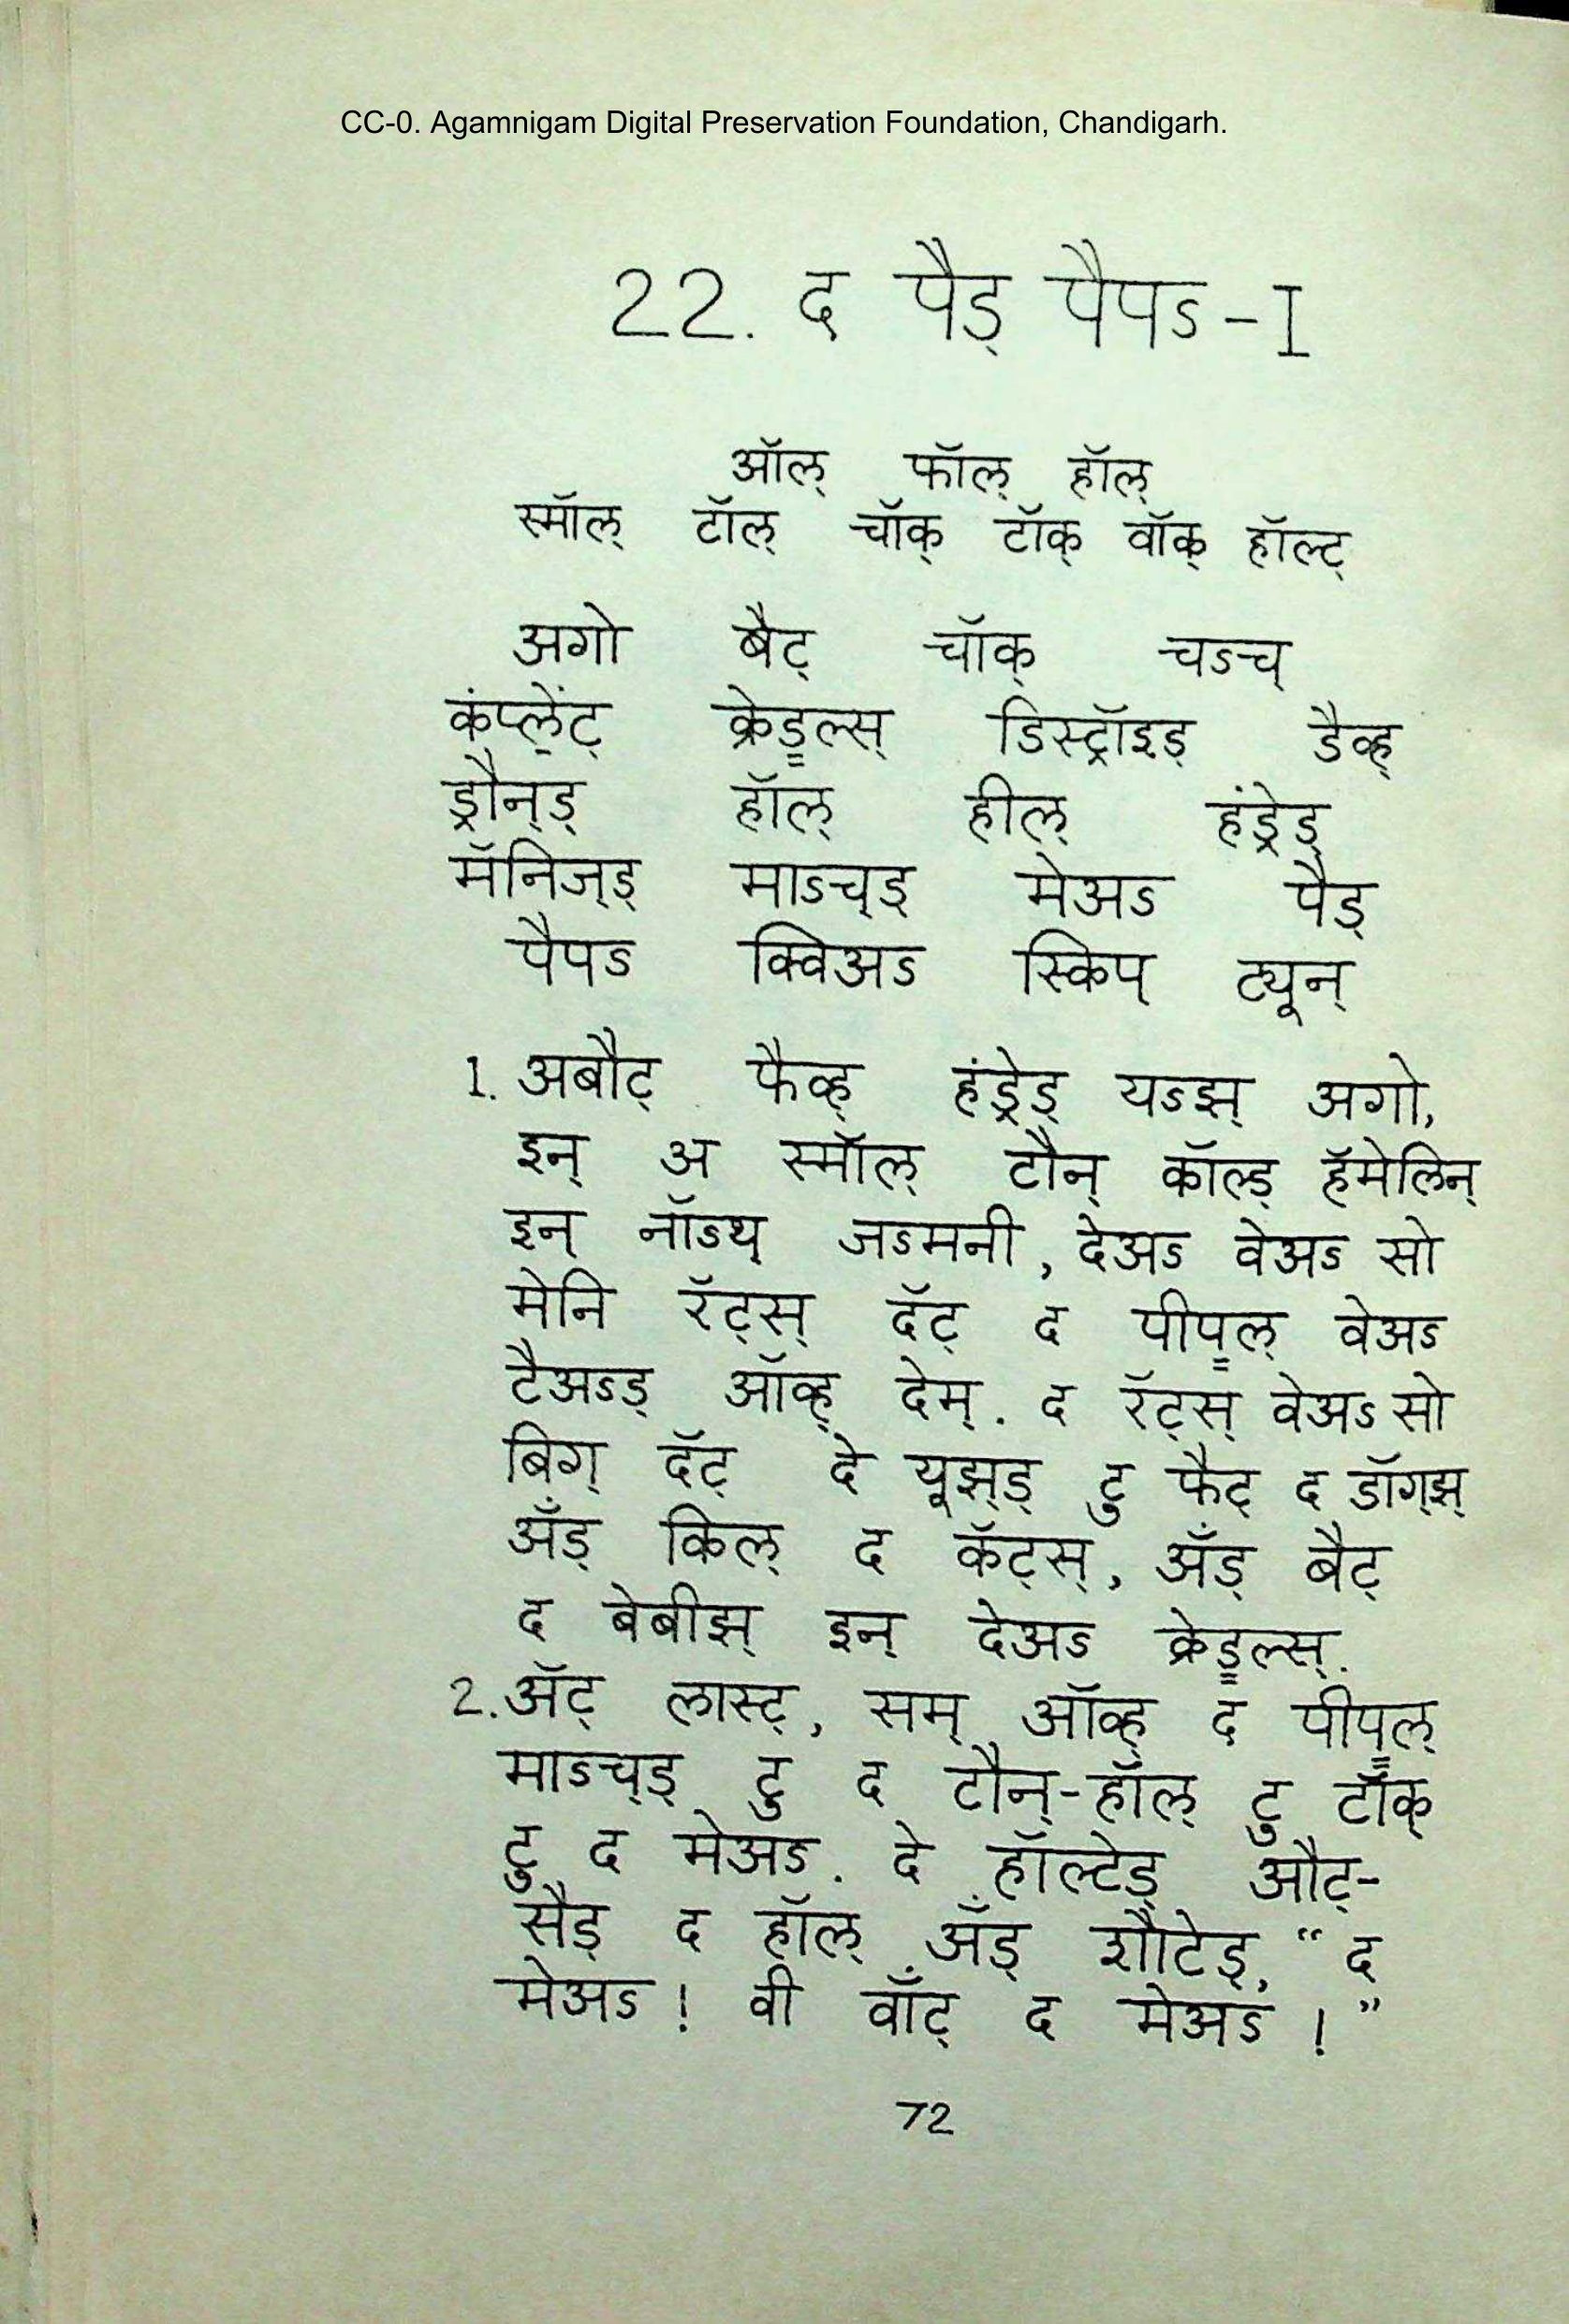 CC-0. Agamnigam Digital Preservation Foundation, Chandigarh.
22. द पैड् पैपऽ - I
ऑल् फॉल् हॉल्
स्मॉल् टॉल् चॉक् टॉक् वॉक् हॉल्ट्
अगो बैट् चॉक् चऽच्
कंप्लेंट् क्रेड्ल्स् डिस्ट्रॉइड् डैव्ह्
ड्रौन्ड् हॉल् हील् हंड्रेड्
मॅनिज्ड् माऽच्ड् मेअऽ पैड्
पैपऽ क्विअऽ स्किप् ट्यून्
1. अबौट् फैव्ह् हंड्रेड् यऽझ् अगो,
इन् अ स्मॉल् टौन् कॉल्ड् हॅमेलिन्
इन् नॉऽथ् जऽमनी, देअऽ वेअऽ सो
मेनि रॅट्स् दॅट् द पीप्ल् वेअऽ
टैअऽड् ऑव्ह् देम्. द रॅट्स् वेअऽ सो
बिग् दॅट् दे यूझ्ड् टु फैट् द डॉग्झ्
अँड् किल् द कॅट्स्, अँड् बैट्
द बेबीझ् इन् देअऽ क्रेड्ल्स्.
2. अ‍ॅट् लास्ट्, सम् ऑव्ह् द पीप्ल्
माऽच्ड् टु द टौन्-हॉल् टु टॉक्
टु द मेअऽ. दे हॉल्टेड् औट्-
सैड् द हॉल् अँड् शौटेड्, “द
मेअऽ! वी वाँट् द मेअऽ!”
72